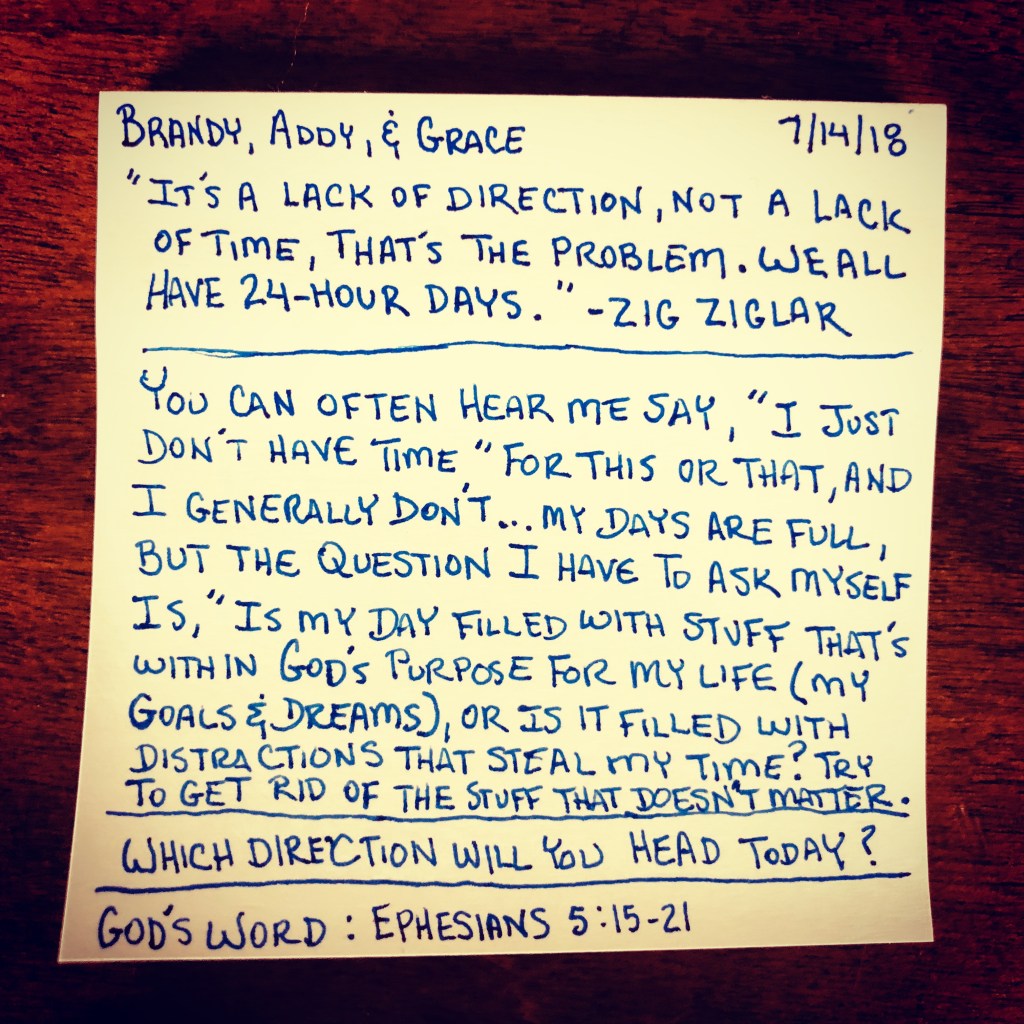 BRANDY, ADDY, & GRACE 7/14/18
"IT'S A LACK OF DIRECTION, NOT A LACK
OF TIME, THAT'S THE PROBLEM. WE ALL
HAVE 24-HOUR DAYS." -ZIG ZIGLAR
YOU CAN OFTEN HEAR ME SAY, "I JUST
DON'T HAVE TIME" FOR THIS OR THAT, AND
I GENERALLY DON'T... MY DAYS ARE FULL,
BUT THE QUESTION I HAVE TO ASK MYSELF
IS, "IS MY DAY FILLED WITH STUFF THAT'S
WITHIN GOD'S PURPOSE FOR MY LIFE (MY
GOALS & DREAMS), OR IS IT FILLED WITH
DISTRACTIONS THAT STEAL MY TIME? TRY
TO GET RID OF THE STUFF THAT DOESN'T MATTER.
WHICH DIRECTION WILL YOU HEAD TODAY?
GOD'S WORD : EPHESIANS 5:15-21